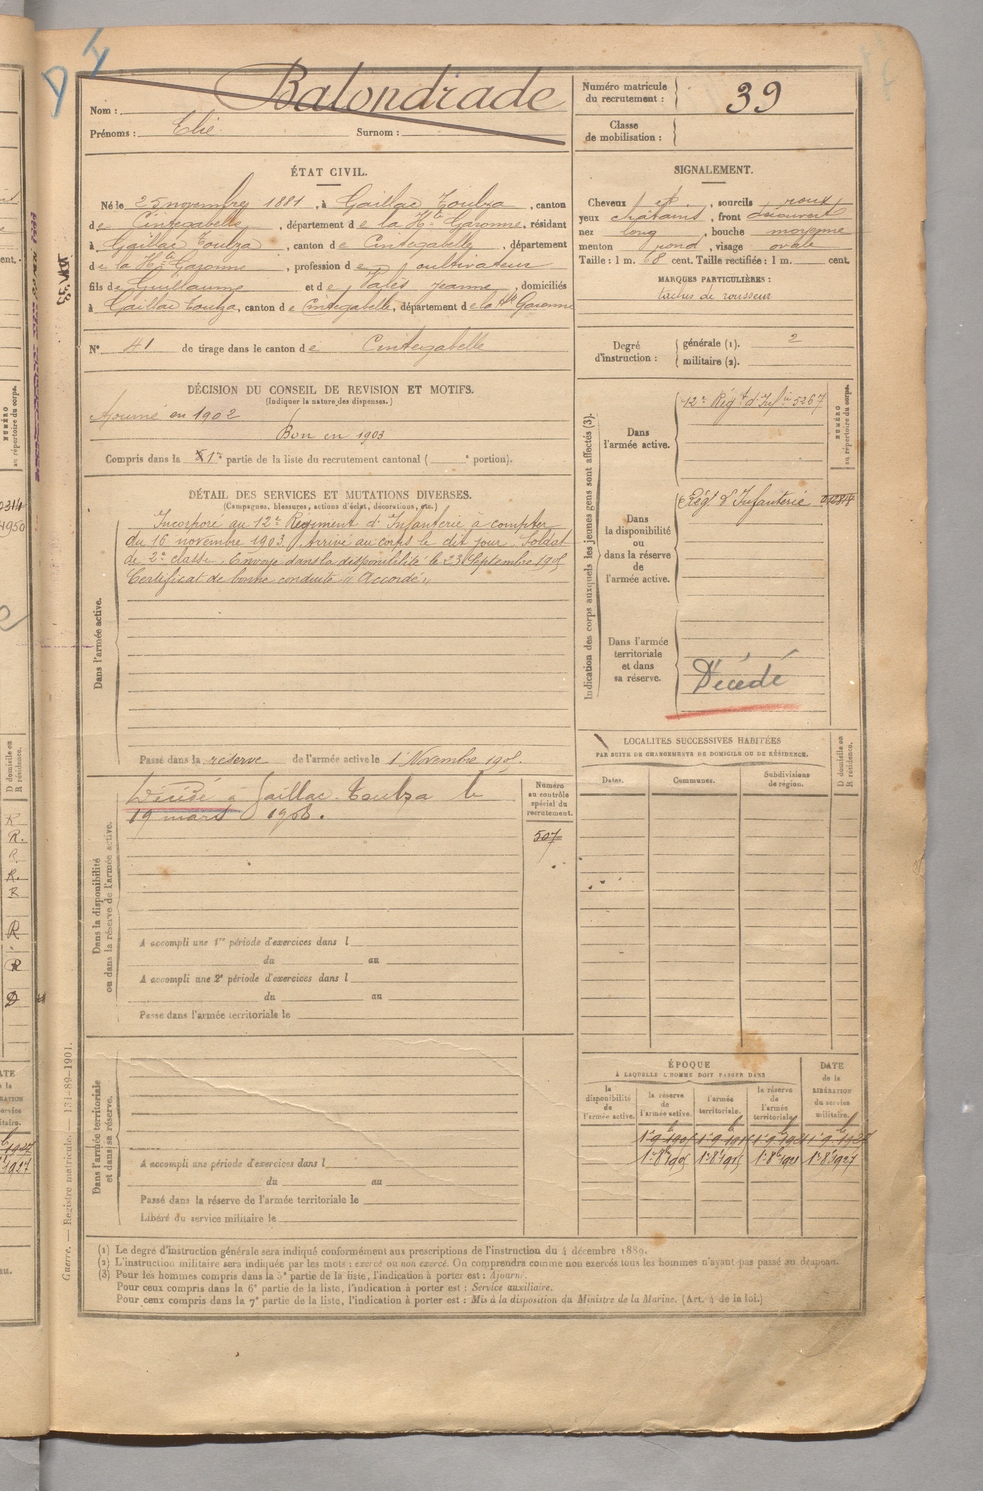 Nom : Balondrade
Prénoms : Elie Surnom :
Numéro matricule du recrutement : 39
Classe de mobilisation :
ÉTAT CIVIL.
Né le 25 novembre 1881, à Gaillac Toulza, canton
de Cintegabelle, département de la Hte Garonne, résidant
à Gaillac Toulza, canton de Cintegabelle, département
de la Hte Garonne, profession de cultivateur
fils de Guillaume et de Jeanne, domiciliés
à Gaillac Toulza, canton de Cintegabelle, département de la Hte Garonne
N° 41 de tirage dans le canton de Cintegabelle
SIGNALEMENT.
Cheveux id, sourcils roux
yeux chatains, front découvert
nez long, bouche moyenne
menton rond, visage ovale
Taille : 1 m. 68 cent. Taille rectifiée : 1 m. cent.
MARQUES PARTICULIÈRES :
taches de rousseur
Degré d'instruction : générale (1). 2
militaire (2).
DÉCISION DU CONSEIL DE REVISION ET MOTIFS.
(Indiquer la nature des dispenses.)
Ajourné en 1902
Bon en 1903
Compris dans la 1re partie de la liste du recrutement cantonal ( e portion).
DÉTAIL DES SERVICES ET MUTATIONS DIVERSES.
(Campagnes, blessures, actions d'éclat, décorations, etc.)
Dans l'armée active.
Incorporé au 12e Régiment d'Infanterie à compter
du 16 novembre 1903. Arrivé au corps le dit jour. Soldat
de 2e classe. Envoyé dans la disponibilité le 23 Septembre 1905
Certificat de bonne conduite "Accordé"
Passé dans la réserve de l'armée active le 1 Novembre 1905.
Indication des corps auxquels les jeunes gens sont affectés (3).
NUMÉRO au répertoire du corps.
Dans l'armée active.
12e Régt d'Infie 5267
Dans la disponibilité ou dans la réserve de l'armée active.
Régt d'Infanterie
Dans l'armée territoriale et dans sa réserve.
Décédé
LOCALITÉS SUCCESSIVES HABITÉES
PAR SUITE DE CHANGEMENTS DE DOMICILE OU DE RÉSIDENCE.
Dates. Communes. Subdivisions de région. D domicile ou R résidence.
Dans la disponibilité ou dans la réserve de l'armée active.
Décédé à Gaillac-Toulza le
19 mars 1906.
Numéro au contrôle spécial du recrutement.
507
A accompli une 1re période d'exercices dans l
du au
A accompli une 2e période d'exercices dans l
du au
Passé dans l'armée territoriale le
Dans l'armée territoriale et dans sa réserve.
A accompli une période d'exercices dans l
du au
Passé dans la réserve de l'armée territoriale le
Libéré du service militaire le
ÉPOQUE
À LAQUELLE L'HOMME DOIT PASSER DANS
la disponibilité de l'armée active.
la réserve de l'armée active.
l'armée territoriale.
la réserve de l'armée territoriale.
DATE de la LIBÉRATION du service militaire.
(1) Le degré d'instruction générale sera indiqué conformément aux prescriptions de l'instruction du 4 décembre 1889.
(2) L'instruction militaire sera indiquée par les mots : exercé ou non exercé. On comprendra comme non exercés tous les hommes n'ayant pas passé au drapeau.
(3) Pour les hommes compris dans la 5e partie de la liste, l'indication à porter est : Ajourné.
Pour ceux compris dans la 6e partie de la liste, l'indication à porter est : Service auxiliaire.
Pour ceux compris dans la 7e partie de la liste, l'indication à porter est : Mis à la disposition du Ministre de la Marine. (Art. 4 de la loi.)
Guerre. — Registre matricule. — 131-89-1901.